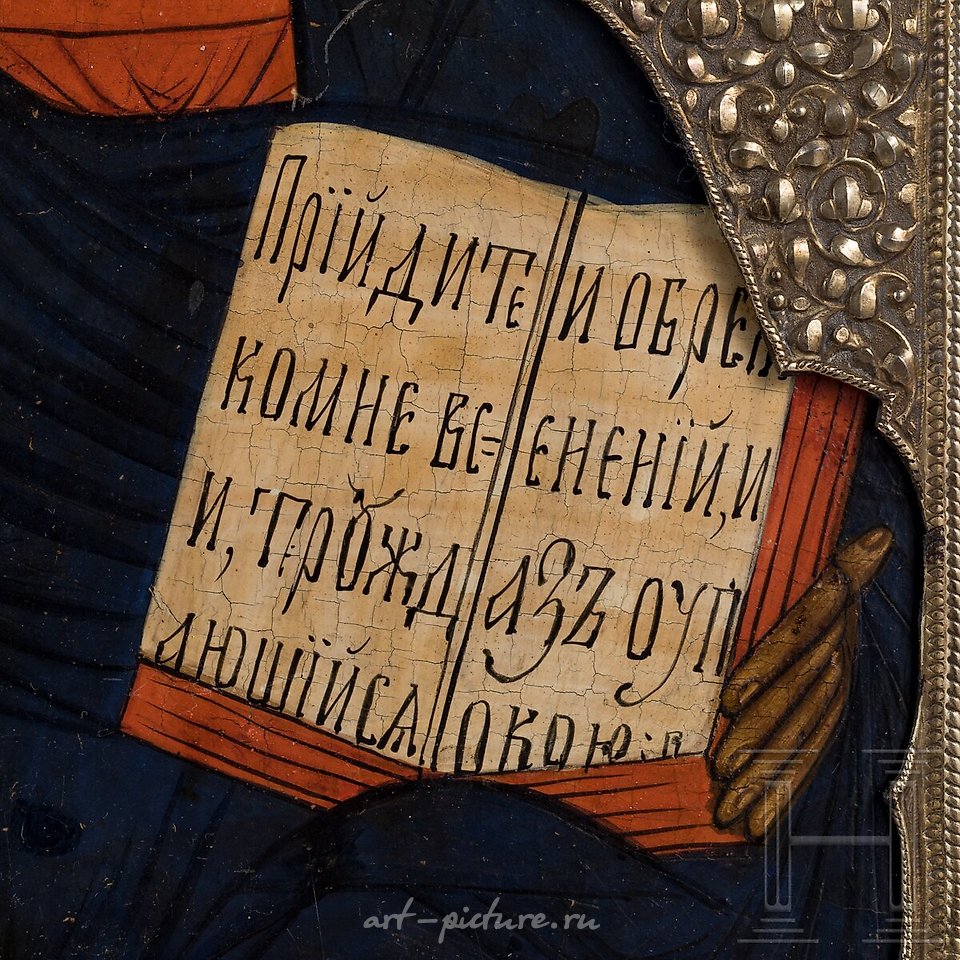 Прїйдите
комне вс=
и, трꙋжд
ающїйса
и обрем
ененїй, и
азъ оуп
окою:
art-picture.ru
H